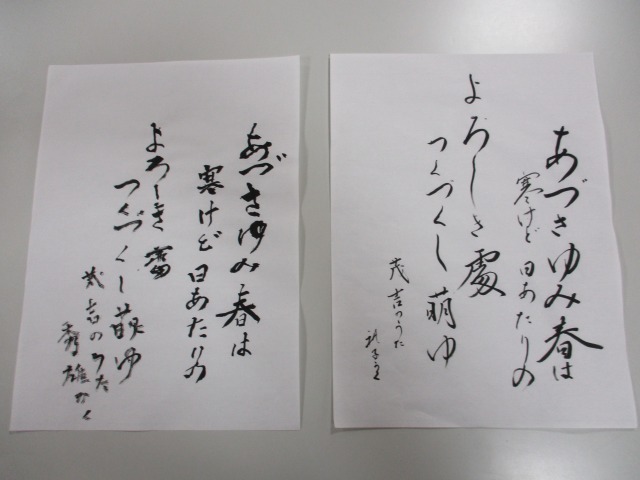 あづさゆみ春は
寒けど日あたりの
よろしき處
つくづくし萌ゆ
茂吉のうた
秀雄かく
あづさゆみ春は
寒けど日あたりの
よろしき處
つくづくし萌ゆ
茂吉のうた